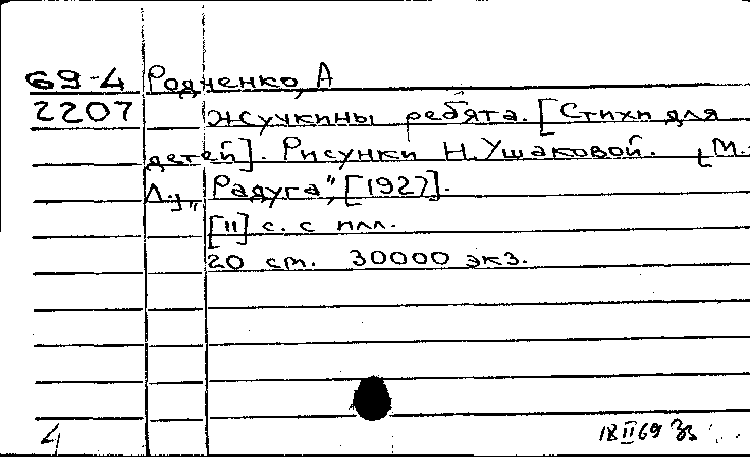 69-4 Родченко, А
2207 Жучкины ребята. [Стихи для
детей]. Рисунки Н. Ушаковой. [М.-
Л.], "Радуга", [1927].
[11] с. с илл.
20 см. 30000 экз.
4
18 II 69